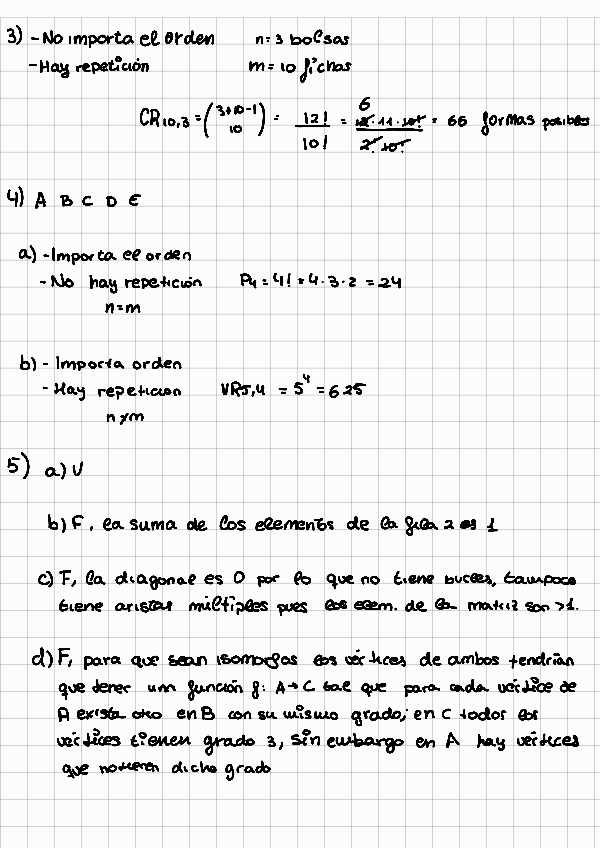 3) - No importa el orden n=3 bolsas
- Hay repetición m=10 fichas
CR10,3 = (3+10-1 10) = 12!/10! = 6 12·11·10!/2!·10! = 66 formas posibles
4) A B C D E
a) - Importa el orden
- No hay repetición P4 = 4! = 4·3·2 = 24
n=m
b) - Importa orden
- Hay repeticion VR5,4 = 5^4 = 625
n≠m
5) a) V
b) F, la suma de los elementos de la fila 2 es 1
c) F, la diagonal es 0 por lo que no tiene bucles, tampoco
tiene aristas múltiples pues los elem. de la matriz son >1.
d) F, para que sean isomorfas los vértices de ambos tendrían
que tener una función f: A→C tal que para cada vértice de
A exista otro en B con su mismo grado; en C todos los
vértices tienen grado 3, sin embargo en A hay vértices
que no tienen dicho grado